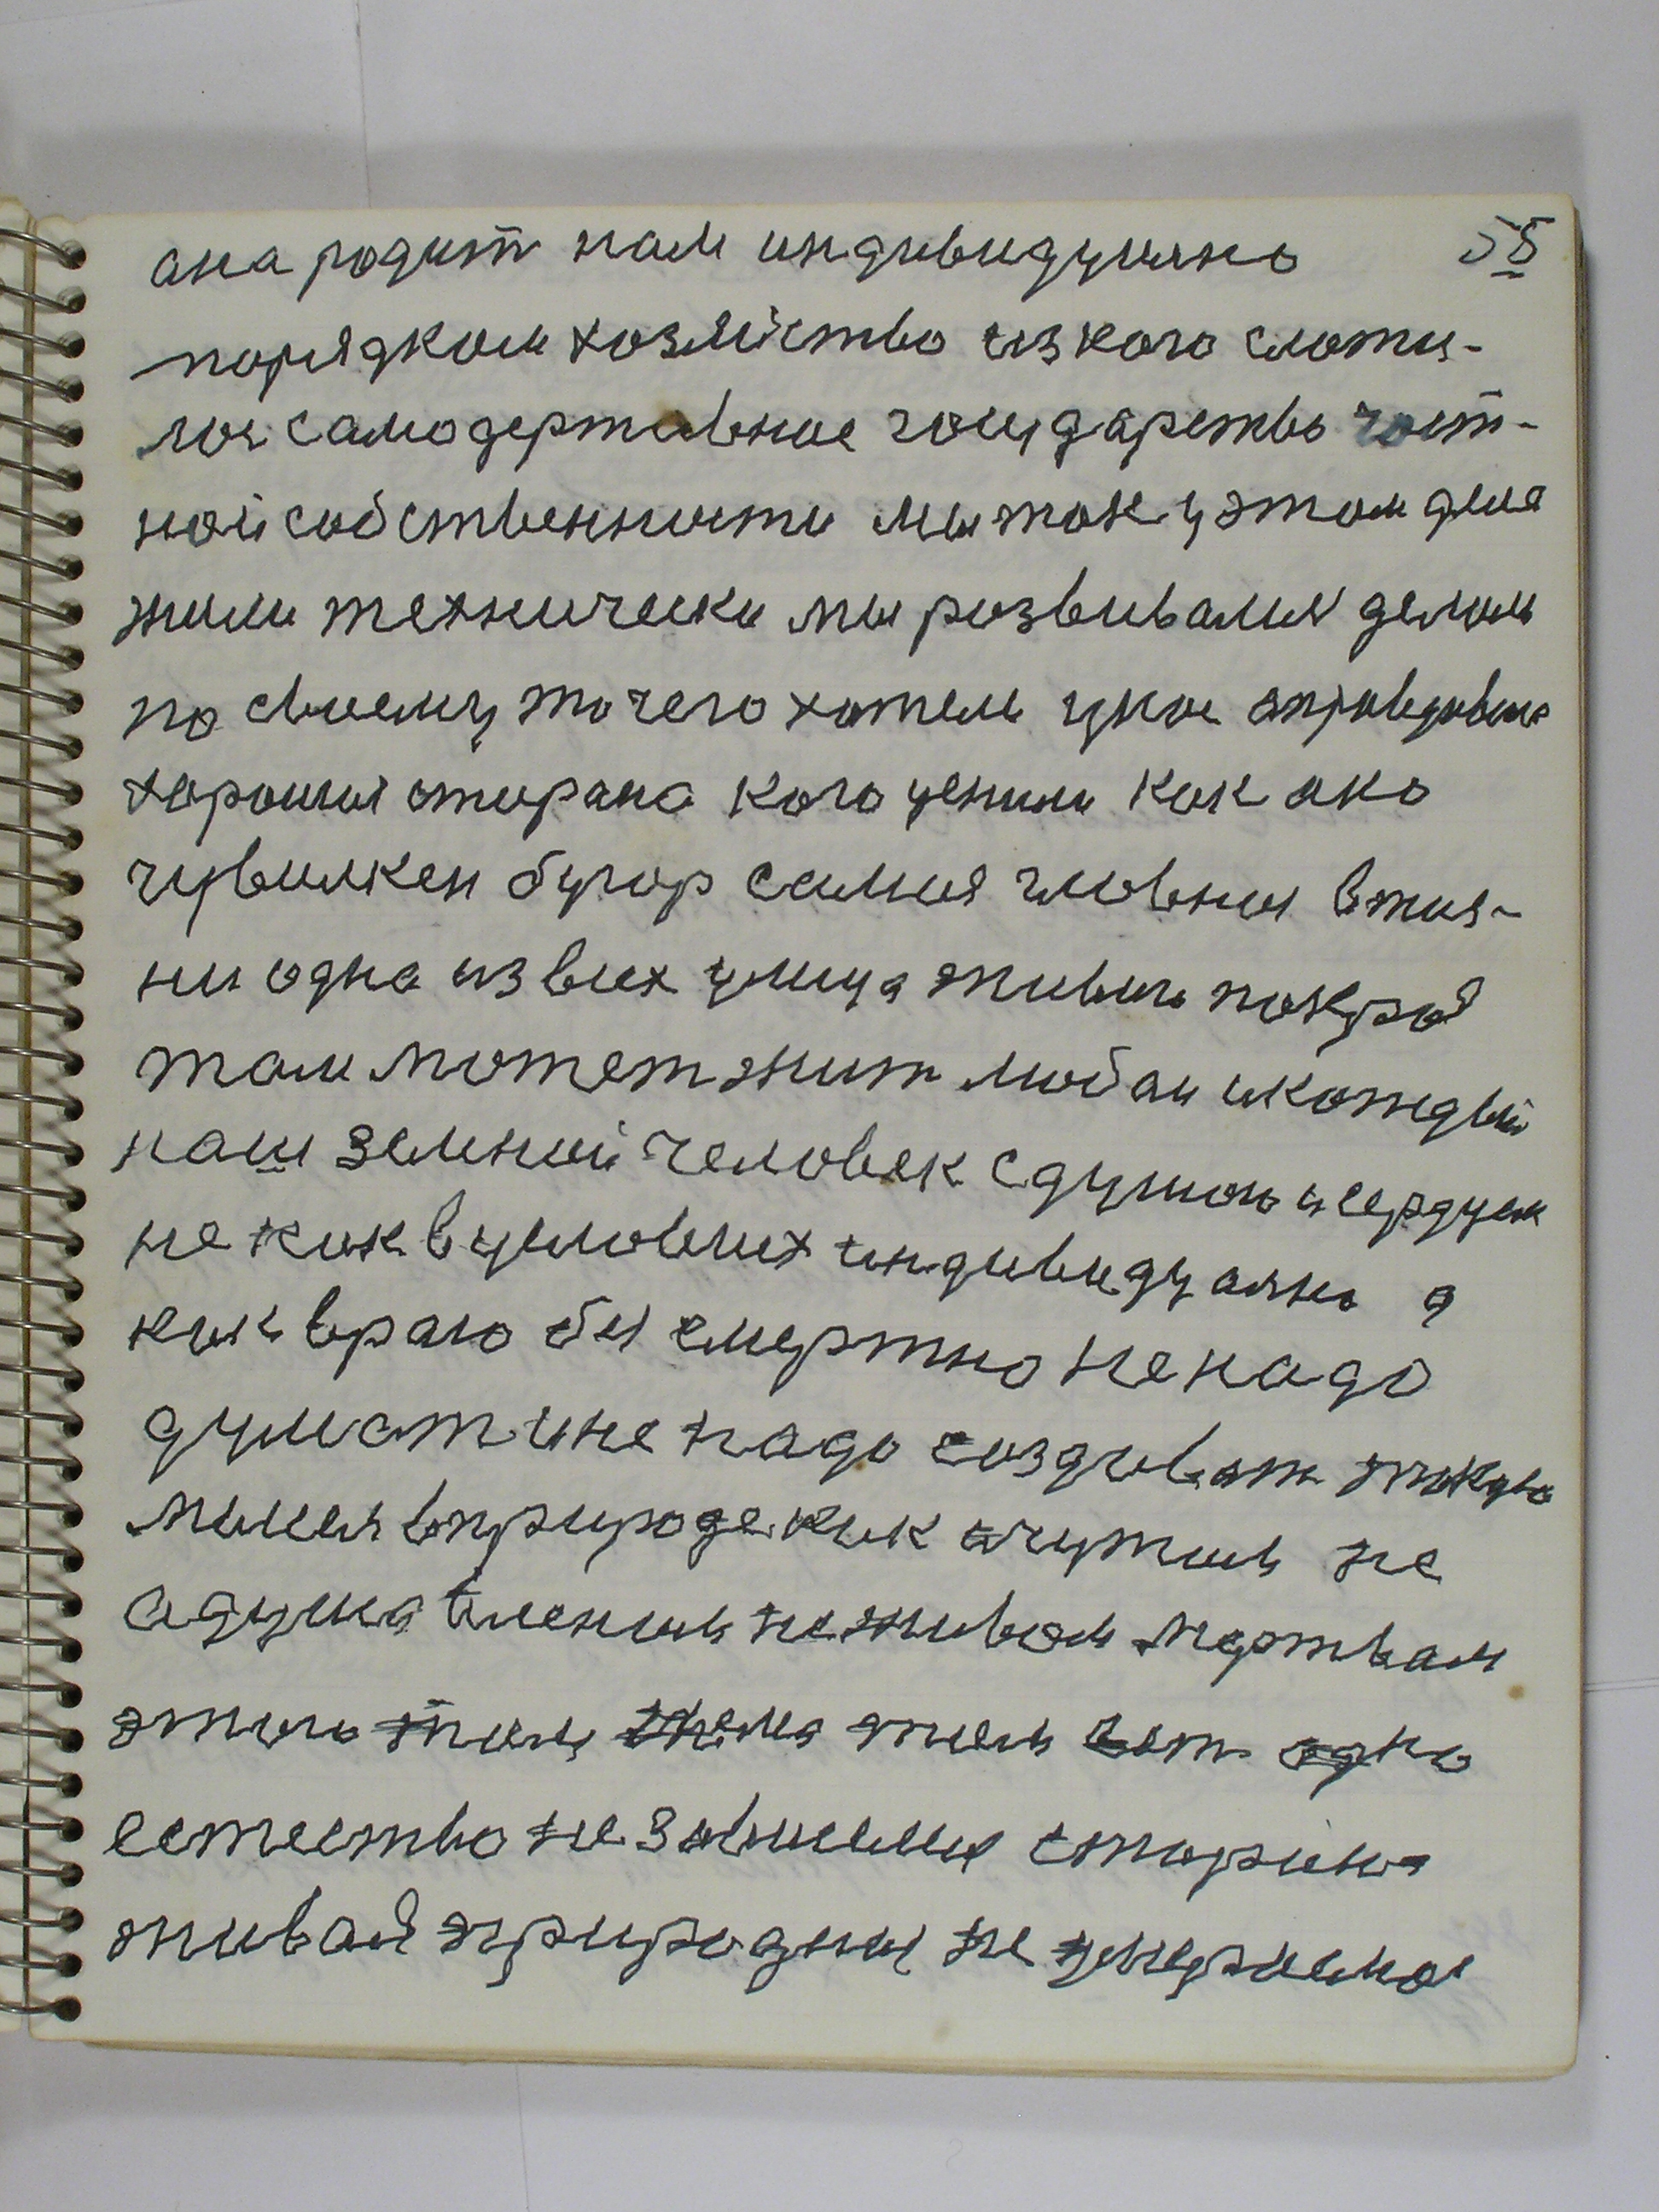 ана родит нам индивидуально 55
порядком хозяйство из кого сложи-
лос самодержавное государство част-
ной собственности мы так у этом деле
жили технически мы развивалися делали
по своему то чего хотели
хорошая сторана кого ценили как ако
чувилкен бугор самая главная в жиз-
ни одна из всех
там может жит любаи и каждый
наш земной человек с душою и сердцем
не как в условиях индивидуално а
как враго бы смертно не надо
думат и не надо создават такую
мысля в природе как и чутью не
адушевленым не живом мертвам
этого тела тела вот одно
естество не зависимая сторана
живая природныи не умераемое